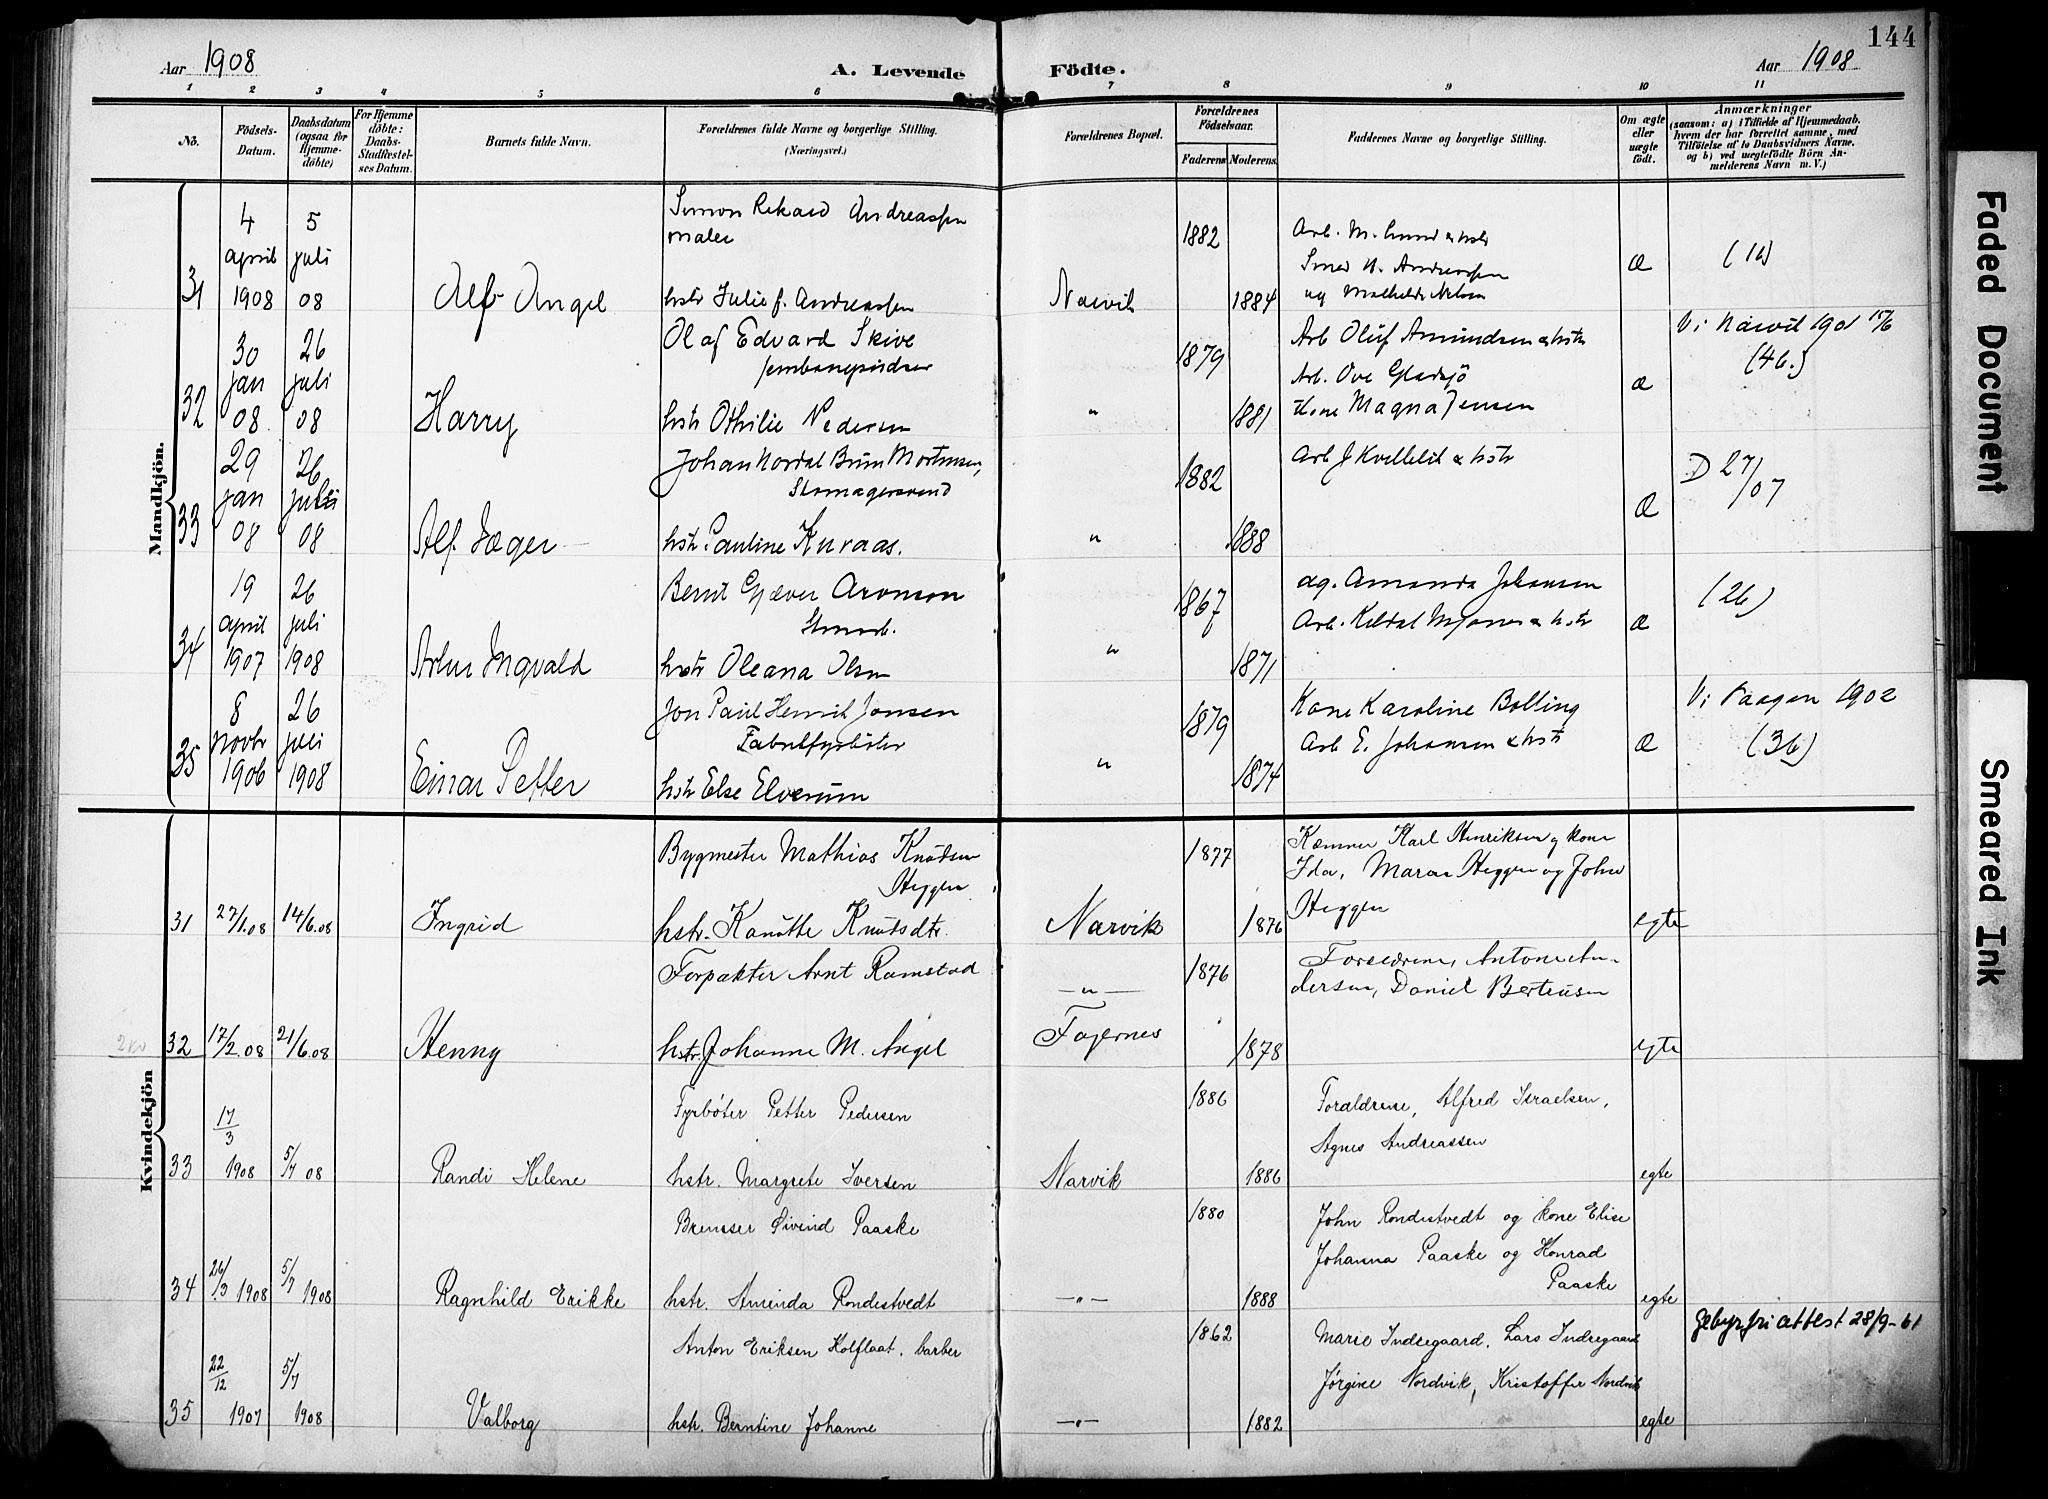 144
Aar 1908
A. Levende Födte.
Aar 1908
1 2 3 4 5 6 7 8 9 10 11
No.
Födsels-Datum.
Daabsdatum (ogsaa for Hjemme-döbte)
For Hjemme döbte: Daabs-Stadfæstel-ses Datum.
Barnets fulde Navn.
Forældrenes fulde Navne og borgerlige Stilling.
(Næringsvei.)
Forældrenes Bopæl.
Forældrenes Födselsaar.
Faderens. Moderens.
Faddernes Navne og borgerlige Stilling.
Om ægte eller uægte födt.
Anmærkninger
(saasom: a) i Tilfælde af Hjemmedaab,
hvem der har forrettet samme, med
Tilföielse af to Daabsvidners Navne.
og b) ved uægtefödte Börn An-
melderens Navn m. V.)
Mandkjön.
31
4 april 1908
5 juli 08
Alf Angel
Simon Rikard Andreassen
maler
hstr Julie f. Andreassen
Narvik
1882
1884
Arb. M. Lund & hstr
Smed N. Andreassen
og Mathilde Nilsen
æ
32
30 jan 08
26 juli 08
Harry
Olaf Edvard Skive
hstr Othilie Pedersen
"
1879
1881
Arb Oluf Amundsen & hstr
Arb. Ove Gladsjö
Kone Magna Jensen
æ
V: Narvik 1901 15/6
(46.)
33
29 jan 08
26 juli 08
Alf Jæger
Johan Nordal Brun Mortensen,
hstr. Pauline Kuraas.
"
1882
1888
Arb J Kvellelid & hstr
æ
D 27/07
34
19 april 1907
26 juli 1908
Artur Ingvald
Bernt Gjæver Aronson
hstr Oleana Olsen
"
1867
1871
ag. Amanda Johansen
Arb. Kildal & hstr
æ
(26)
35
8 novbr 1906
26 juli 1908
Einar Petter
Jon Paul Henrik Jonsen
hstr Else Elverum
"
1879
1874
Kone Karoline Bolling
Arb E. Johansen & hstr
æ
V: Vaagan 1902
(36)
Kvindekjön
31
27/1.08
14/6.08
Ingrid
Bygmester Mathias Knudsen
Heggen
hstr. Kanutte Knutsdtr.
Narvik
1877
1876
Kæmner Karl Henriksen og kone
Ida, Maren Heggen og John
Heggen
egte
32
17/2.08
21/6.08
Henny
Forpakter Arnt Ramstad
hstr. Johanne M. Angel
—"—
Fagernes
1876
1878
Forældrene, Antone An-
dersen, Daniel Berteusen
egte
33
17/3 1908
5/7 08
Randi Helene
Fyrböter Petter Pedersen
hstr. Margrete Iversen
Narvik
1886
1886
Foraldrene, Alfred Israelsen,
Agnes Andreassen
egte
34
26/3 1908
5/7 1908
Ragnhild Erikke
Bremser Eivind Paaske
hstr. Aminda Rondestvedt
—"—
1880
1888
John Rondestvedt og kone Elise
Johanna Paaske og Konrad
Paaske
egte
35
22/12 1907
5/7 1908
Valborg
Anton Eriksen Kolflaat. barber
hstr. Berntine Johanne
—"—
1862
1882
Marie Indregaard, Lars Indregaard
Jørgine Nordvik, Kristoffer Nordvik
egte
gebyrfri attest 28/9-61
Faded Document
Smeared Ink